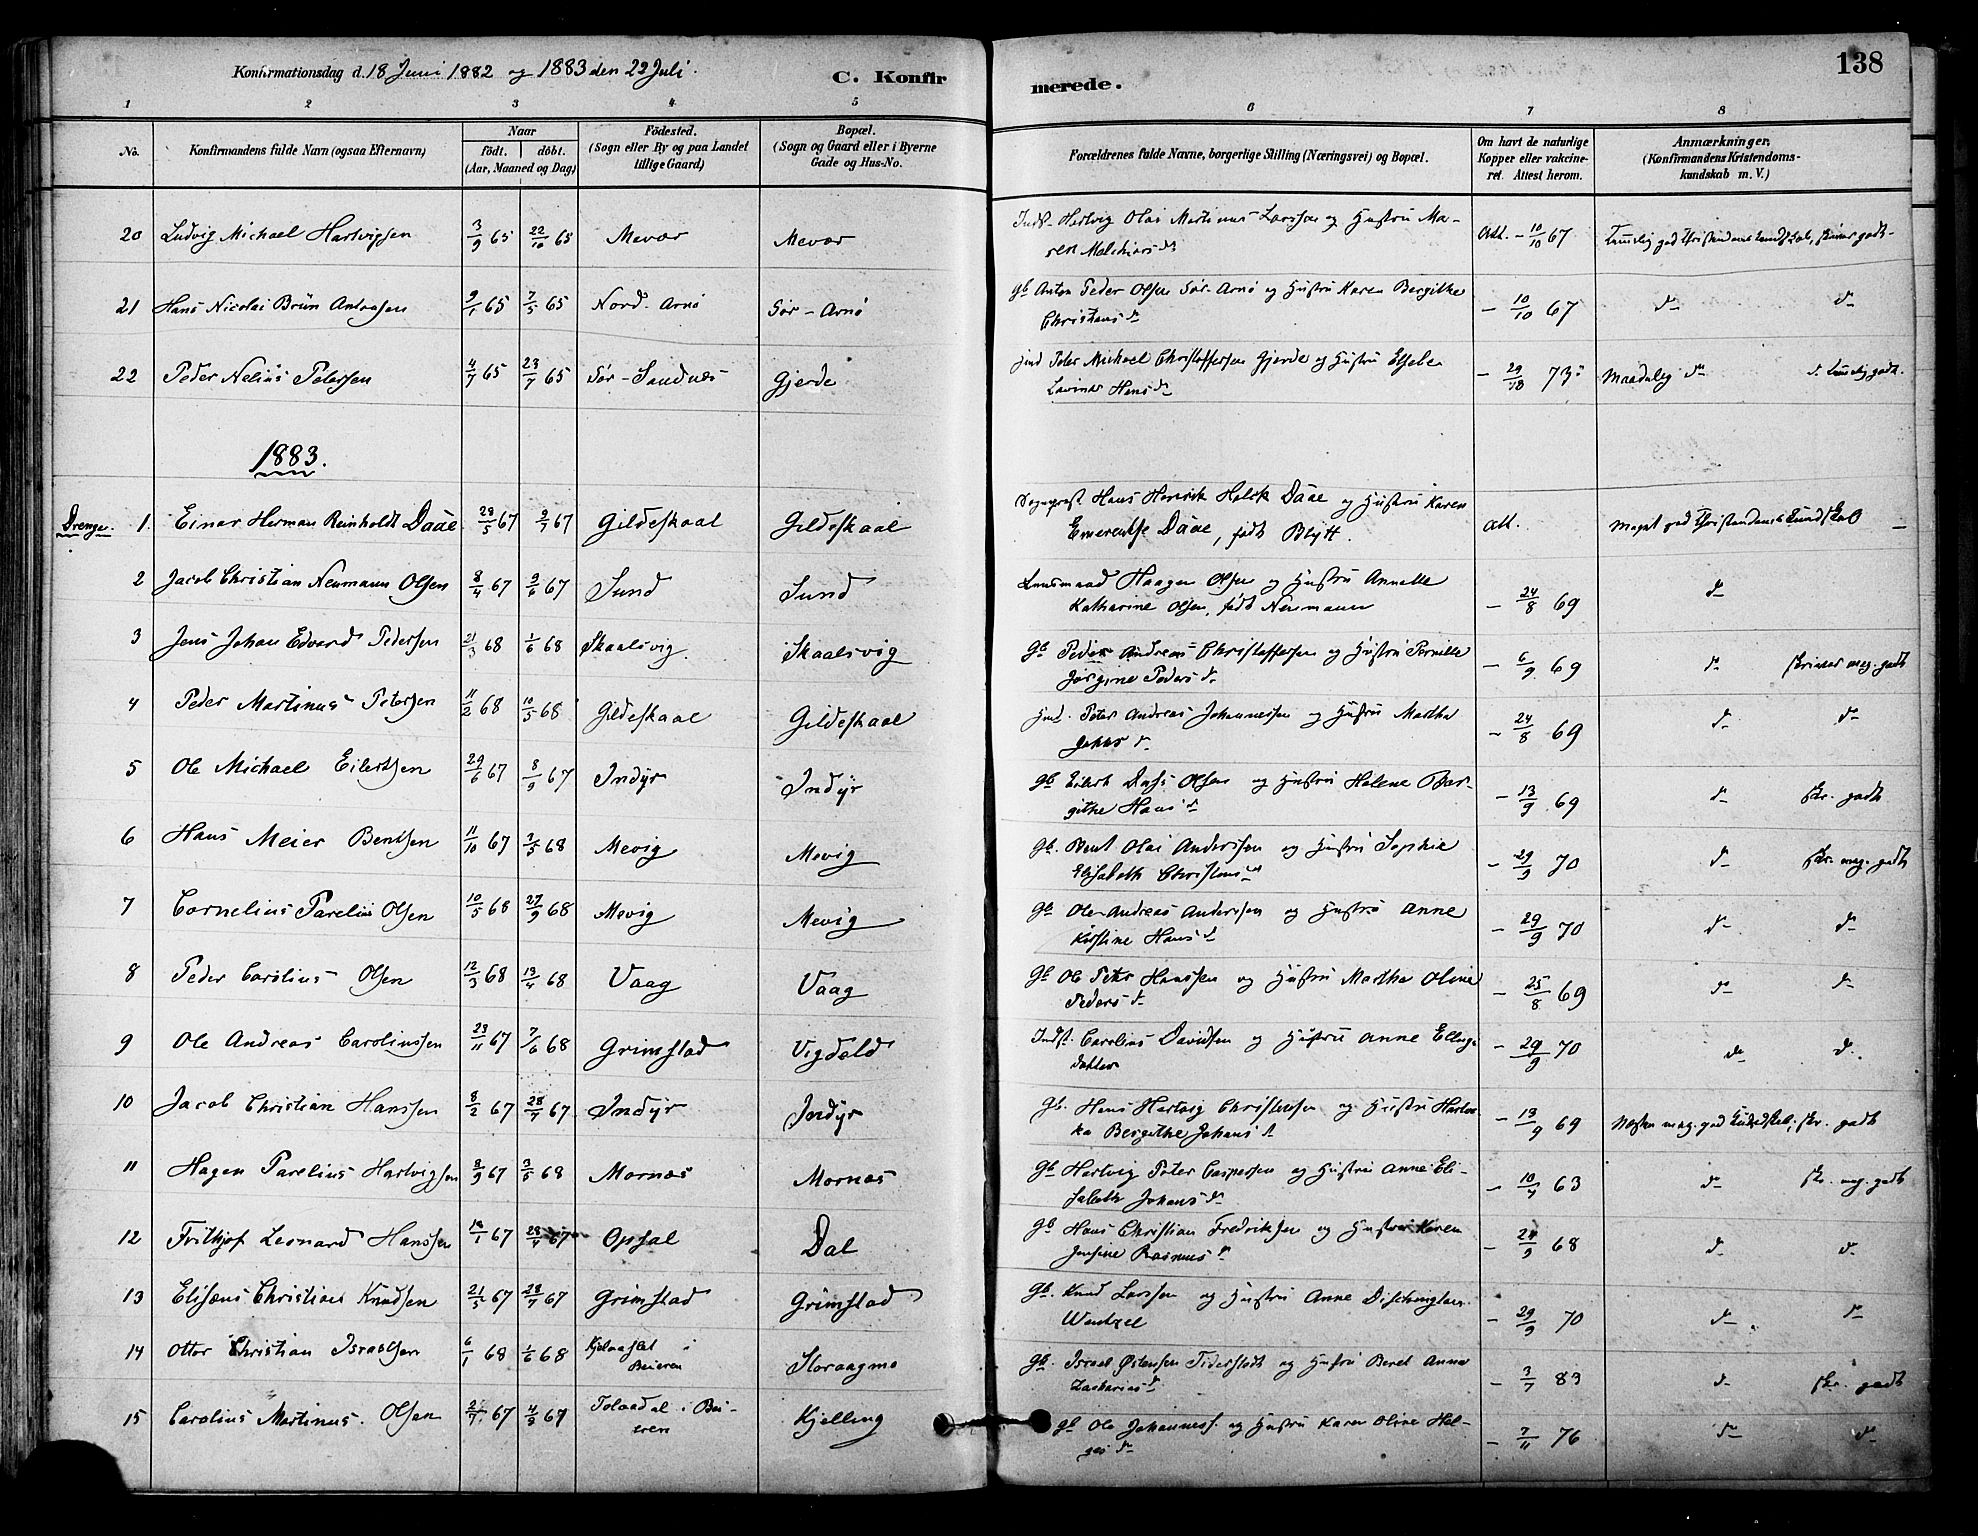 138
Konfirmationsdag d. 18 Juni 1882 og 1883 den 22 Juli.
C. Konfirmerede.
1 2 3 4 5 6 7 8
No. Konfirmandens fulde Navn (ogsaa Efternavn) Naar födt. döbt. (Aar, Maaned og Dag) Födested. (Sogn eller By og paa Landet tillige Gaard) Bopæl. (Sogn og Gaard eller i Byerne Gade og Hus-No. Forældrenes fulde Navne, borgerlige Stilling (Næringsvei) og Bopæl. Om havt de naturlige Kopper eller vakcineret. Attest herom. Anmærkninger. (Konfirmandens Kristendomskundskab m. V.)
20 Ludvig Michael Hartvigsen 3/9 65 22/10 65 Mevær Mevær Indst. Hertvig Olai Martinus Larssen og Hustru Maren Melchiors dr Att. - 10/10 67
21 Hans Nicolai Brün Antonsen 9/1 65 7/5 65 Nord-Arnö Sör-Arnö Gb Anton Peder Olsen Sör-Arnö og Hustru Karen Bergitke Christens dr - 10/10 67 do do
22 Peder Nelius Petersen 4/7 65 23/7 65 Sör-Sandnæs Gjerde Ind Peter Michael Christoffersen Gjerde og Hustru Elsebe Hans dr 73 Maadelig do
1883.
Drenge. 1. Einar Herman Reinholdt Daae 28/5 67 9/7 67 Gildeskaal Gildeskaal Sogneprest Hans Henrik Holck Daae og Hustru Karen Emerentse Daae, födt Blytt. Att. Meget god Christendomskundskab
2 Jacob Christian Neumann Olsen 8/4 67 9/6 67 Sund Sund Lensmand Haagen Olsen og Hustru Annette Katharine Olsen, födt Neumann - 24/8 69 do
3 Jens Johan Edvard Pedersen 21/3 68 1/6 68 Skaalsvig Skaalsvig Gb Peder Andreas Christoffersen og Hustru Pernille Jörgine Peders dr - 6/9 69 do skriver meg. godt
4 Peder Martinus Petersen 11/2 68 10/5 68 Gildeskaal Gildeskaal Ind. Peter Andreas Johannessen og Hustru Martha Johns dr - 24/8 69 do do
5 Ole Michael Eilertsen 29/6 67 8/9 67 Indyr Indyr Gb Eilert Dass Olsen og Hustru Helene Bergithe Hans dr - 13/9 69 do skr. godt
6 Hans Meier Bentsen 11/10 67 3/5 68 Mevig Mevig Gb. Bent Olai Anderssen og Hustru Sophie Elisabeth Christens dr - 29/9 70 do skr. meg. godt
7 Cornelius Parelius Olsen 10/5 68 27/9 68 Mevig Mevig Gb Ole Andreas Anderssen og Hustru Anne Kirstine Hans dr - 29/9 70 do do
8 Peder Carolius Olsen 12/3 68 13/4 68 Vaag Vaag Gb Ole Peter Hanssen og Hustru Martha Oline Peders dr - 25/8 69 do do
9 Ole Andreas Caroliussen 23/11 67 7/6 68 Grimstad Vigdeld Indst. Carolius Davidsen og Hustru Anne Ellingsdatter - 29/9 70 do do
10 Jacob Christian Hanssen 8/2 67 28/4 67 Indyr Indyr Gb. Hans Hartvig Christensen og Hustru Bergithe Johans dr - 13/9 69 Næsten meg. god Kundskab, skr. godt
11 Hagen Parelius Hartvigsen 8/9 67 3/5 68 Mornæs Mornæs Gb Hartvig Peter Caspersen og Hustru Anne Elisabeth Johans dr - 10/7 63 do skr. meg. godt
12 Frithjof Leonard Hanssen 67 28/4 67 Opsal Dal Gb Hans Christian Fredriksen og Hustru Karen Jensine Rasmus dr 68 do do
13 Elisæus Christian Knudsen 21/5 67 28/7 67 Grimstad Grimstad Gb. Knud Larssen og Hustru Anne Wentzel - 29/9 70 do do
14 Ottor Christian Israelsen 6/1 68 1/6 68 i Beieren Storaagmo Gb. Israel Östensen og Hustru Beret Anna Zacharias dr - 3/7 83 do skr. godt
15 Carolius Martinus Olsen 67 67 Tolaadal i Beieren Kjelling Gb Ole Johanness. og Hustru Karen Oline Helges dr - 7/11 76 do do